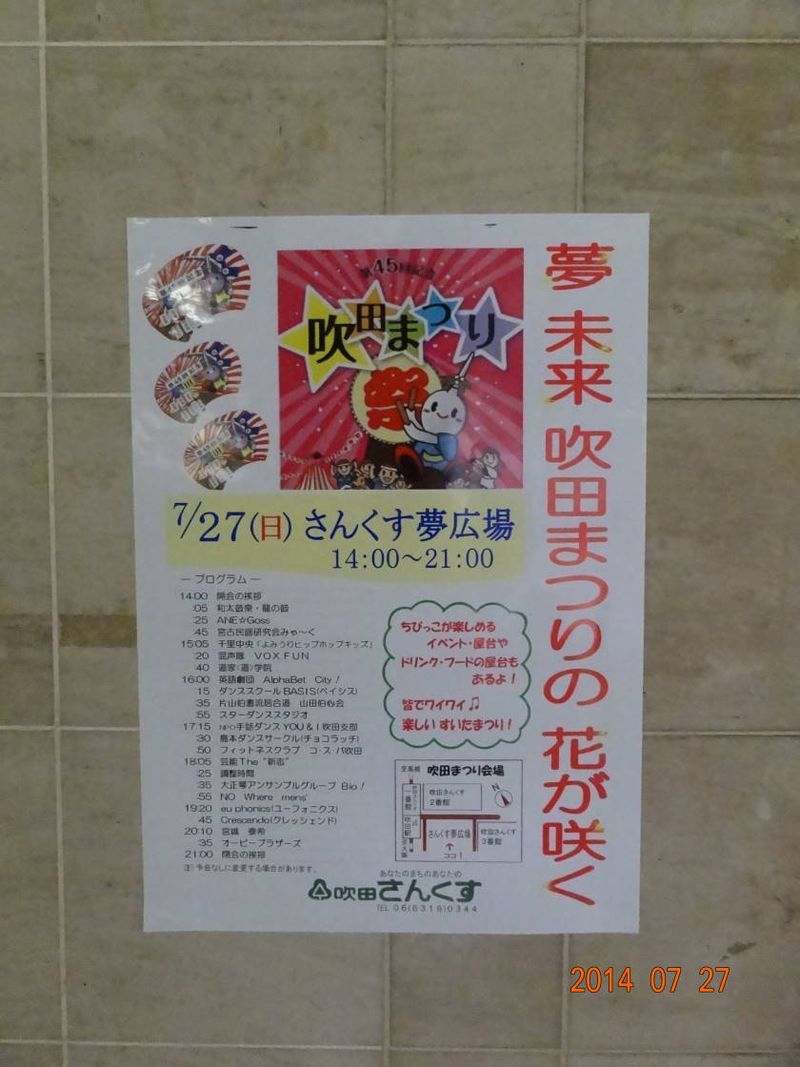 夢 未来 吹田まつりの 花が咲く
第45回記念
吹田まつり
祭
7/27(日) さんくす夢広場
14:00～21:00
― プログラム ―
14:00 開会の挨拶
:05 和太鼓衆・龍の鼓
:25 ANE☆Goss
:45 宮古民謡研究会みゃ～く
15:05 千里中央「よみうりヒップホップキッズ」
:20 混声隊 VOX FUN
:40 道家〈道〉学院
16:00 英語劇団 AlphaBet City！
:15 ダンススクールBASIS(ベイシス)
:35 片山伯耆流居合道 山田伯心会
:55 スターダンススタジオ
17:15 NPO手話ダンスYOU＆I吹田支部
:30 島本ダンスサークル(チョコラッチ)
:50 フィットネスクラブ コ・ス・パ吹田
18:05 芸能The“新志”
:25 調整時間
:35 大正琴アンサンブルグループ Bio！
:55 NO Where mens'
19:20 eu phonics(ユーフォニクス)
:45 Crescendo(クレッシェンド)
20:10 宮城 泰希
:35 オービーブラザーズ
21:00 閉会の挨拶
注）予告なしに変更する場合があります。
ちびっこが楽しめる
イベント・屋台や
ドリンク・フードの屋台も
あるよ！
皆でワイワイ♫
楽しい すいたまつり！
吹田まつり会場
至高槻
一番館
吹田さんくす
2番館
N
JR吹田駅
さんくす夢広場
吹田さんくす
3番館
↑
ココ！
至大阪
あなたのまちのあなたの
吹田さんくす
TEL 06(6319)0344
2014 07 27